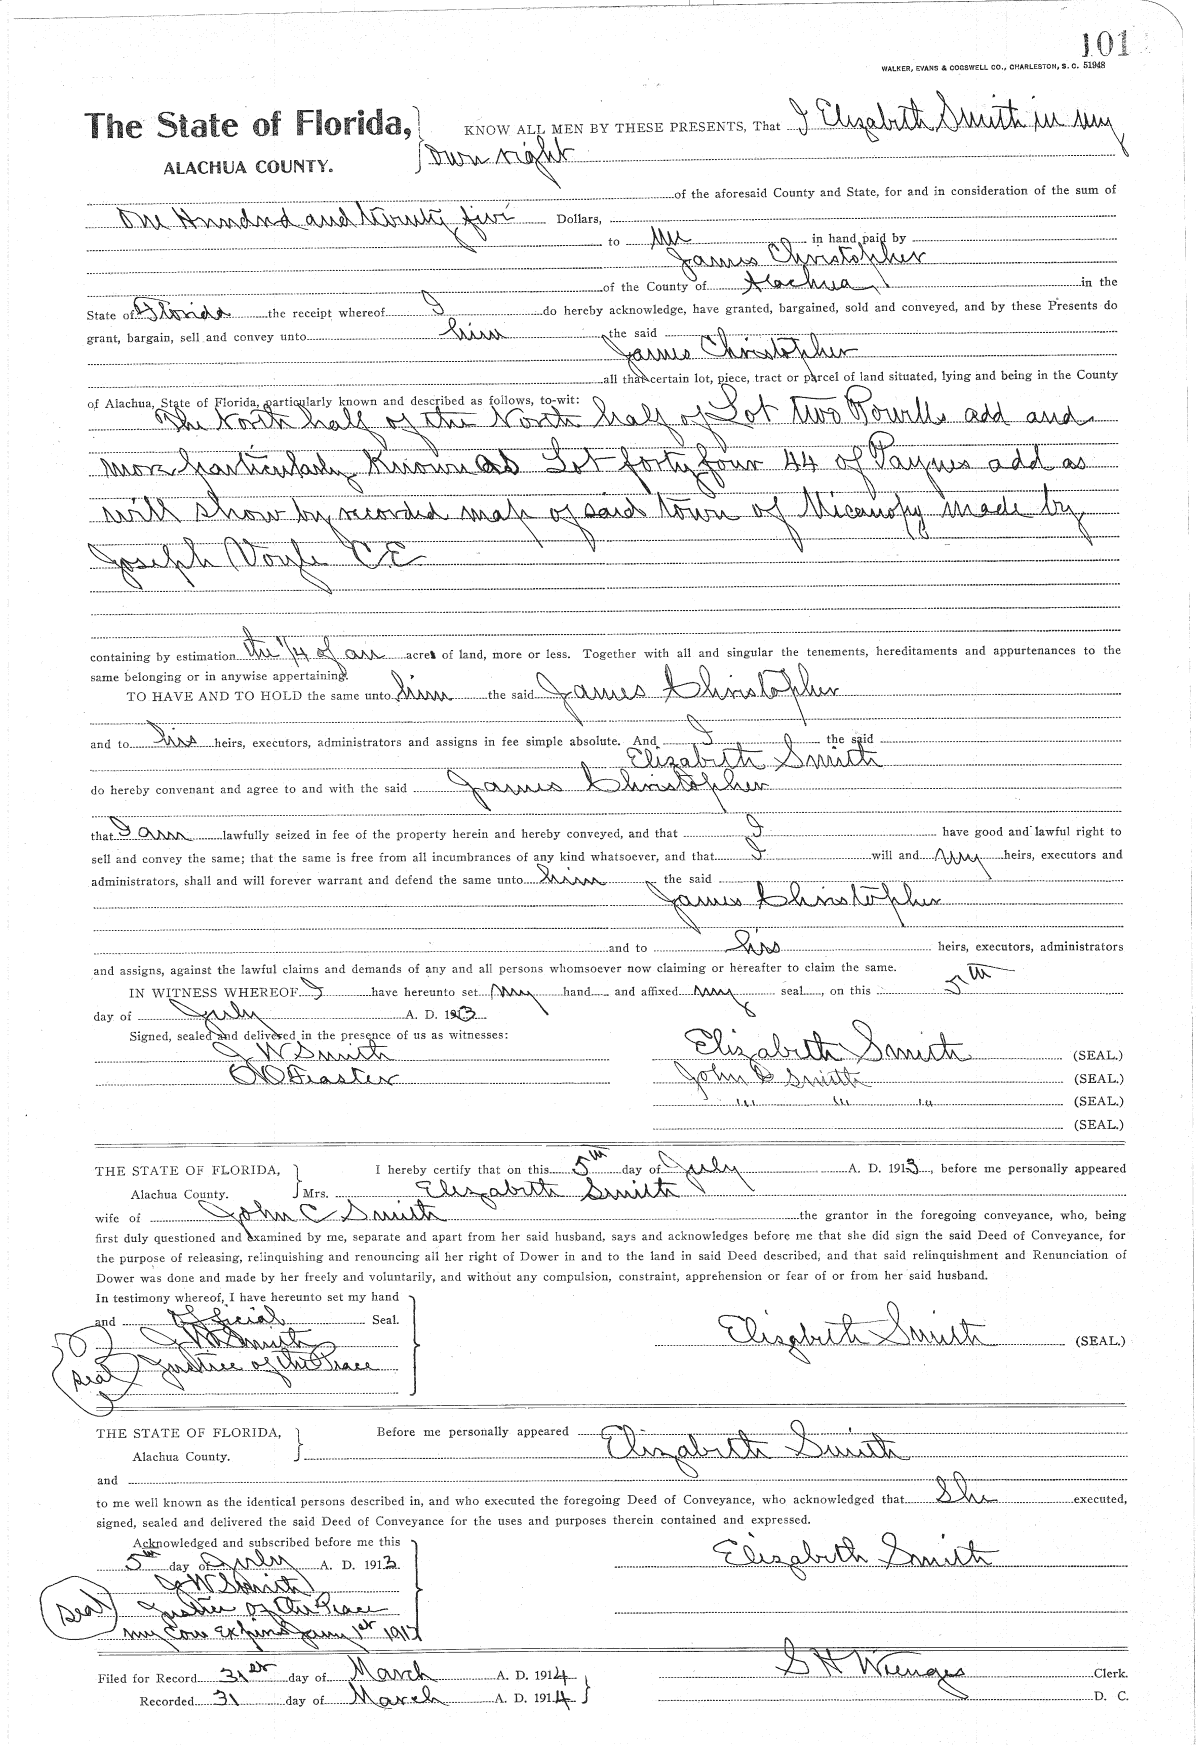 101
WALKER, EVANS & COGSWELL CO., CHARLESTON, S. C. 51948
The State of Florida,
ALACHUA COUNTY.
KNOW ALL MEN BY THESE PRESENTS, That I Elizabeth Smith in my
own right
of the aforesaid County and State, for and in consideration of the sum of
One Hundred and twenty five Dollars,
to me in hand paid by
James Christopher
of the County of Alachua in the
State of Florida the receipt whereof I do hereby acknowledge, have granted, bargained, sold and conveyed, and by these Presents do
grant, bargain, sell and convey unto him the said
James Christopher
all that certain lot, piece, tract or parcel of land situated, lying and being in the County
of Alachua, State of Florida, particularly known and described as follows, to-wit:
The North half of the North half of Lot two Powells add and
more particularly Known as Lot forty four 44 of Paynes add as
will show by recorded map of said town of Micanopy made by
Joseph Voyle C E
containing by estimation the 1/4 of an acre of land, more or less. Together with all and singular the tenements, hereditaments and appurtenances to the
same belonging or in anywise appertaining.
TO HAVE AND TO HOLD the same unto him the said James Christopher
and to his heirs, executors, administrators and assigns in fee simple absolute. And I the said
Elizabeth Smith
do hereby convenant and agree to and with the said James Christopher
that I am lawfully seized in fee of the property herein and hereby conveyed, and that I have good and lawful right to
sell and convey the same; that the same is free from all incumbrances of any kind whatsoever, and that I will and my heirs, executors and
administrators, shall and will forever warrant and defend the same unto him the said
James Christopher
and to his heirs, executors, administrators
and assigns, against the lawful claims and demands of any and all persons whomsoever now claiming or hereafter to claim the same.
IN WITNESS WHEREOF I have hereunto set my hand and affixed my seal, on this 5th
day of July A. D. 1913
Signed, sealed and delivered in the presence of us as witnesses:
J W Smith
Feaster
Elizabeth Smith (SEAL.)
John Smith (SEAL.)
(SEAL.)
(SEAL.)
THE STATE OF FLORIDA,
Alachua County.
I hereby certify that on this 5th day of July A. D. 1913, before me personally appeared
Mrs. Elizabeth Smith
wife of John C Smith the grantor in the foregoing conveyance, who, being
first duly questioned and examined by me, separate and apart from her said husband, says and acknowledges before me that she did sign the said Deed of Conveyance, for
the purpose of releasing, relinquishing and renouncing all her right of Dower in and to the land in said Deed described, and that said relinquishment and Renunciation of
Dower was done and made by her freely and voluntarily, and without any compulsion, constraint, apprehension or fear of or from her said husband.
In testimony whereof, I have hereunto set my hand
and official Seal.
J W Smith
Justice of the Peace
Seal
Elizabeth Smith (SEAL.)
THE STATE OF FLORIDA,
Alachua County.
Before me personally appeared Elizabeth Smith
and
to me well known as the identical persons described in, and who executed the foregoing Deed of Conveyance, who acknowledged that She executed,
signed, sealed and delivered the said Deed of Conveyance for the uses and purposes therein contained and expressed.
Acknowledged and subscribed before me this
5th day of July A. D. 1913
J W Smith
Justice of the Peace
my Com Expires Jany 1st 1917
Seal
Elizabeth Smith
Filed for Record 31st day of March A. D. 1914
Recorded 31 day of March A. D. 1914
S H Wienges Clerk.
D. C.